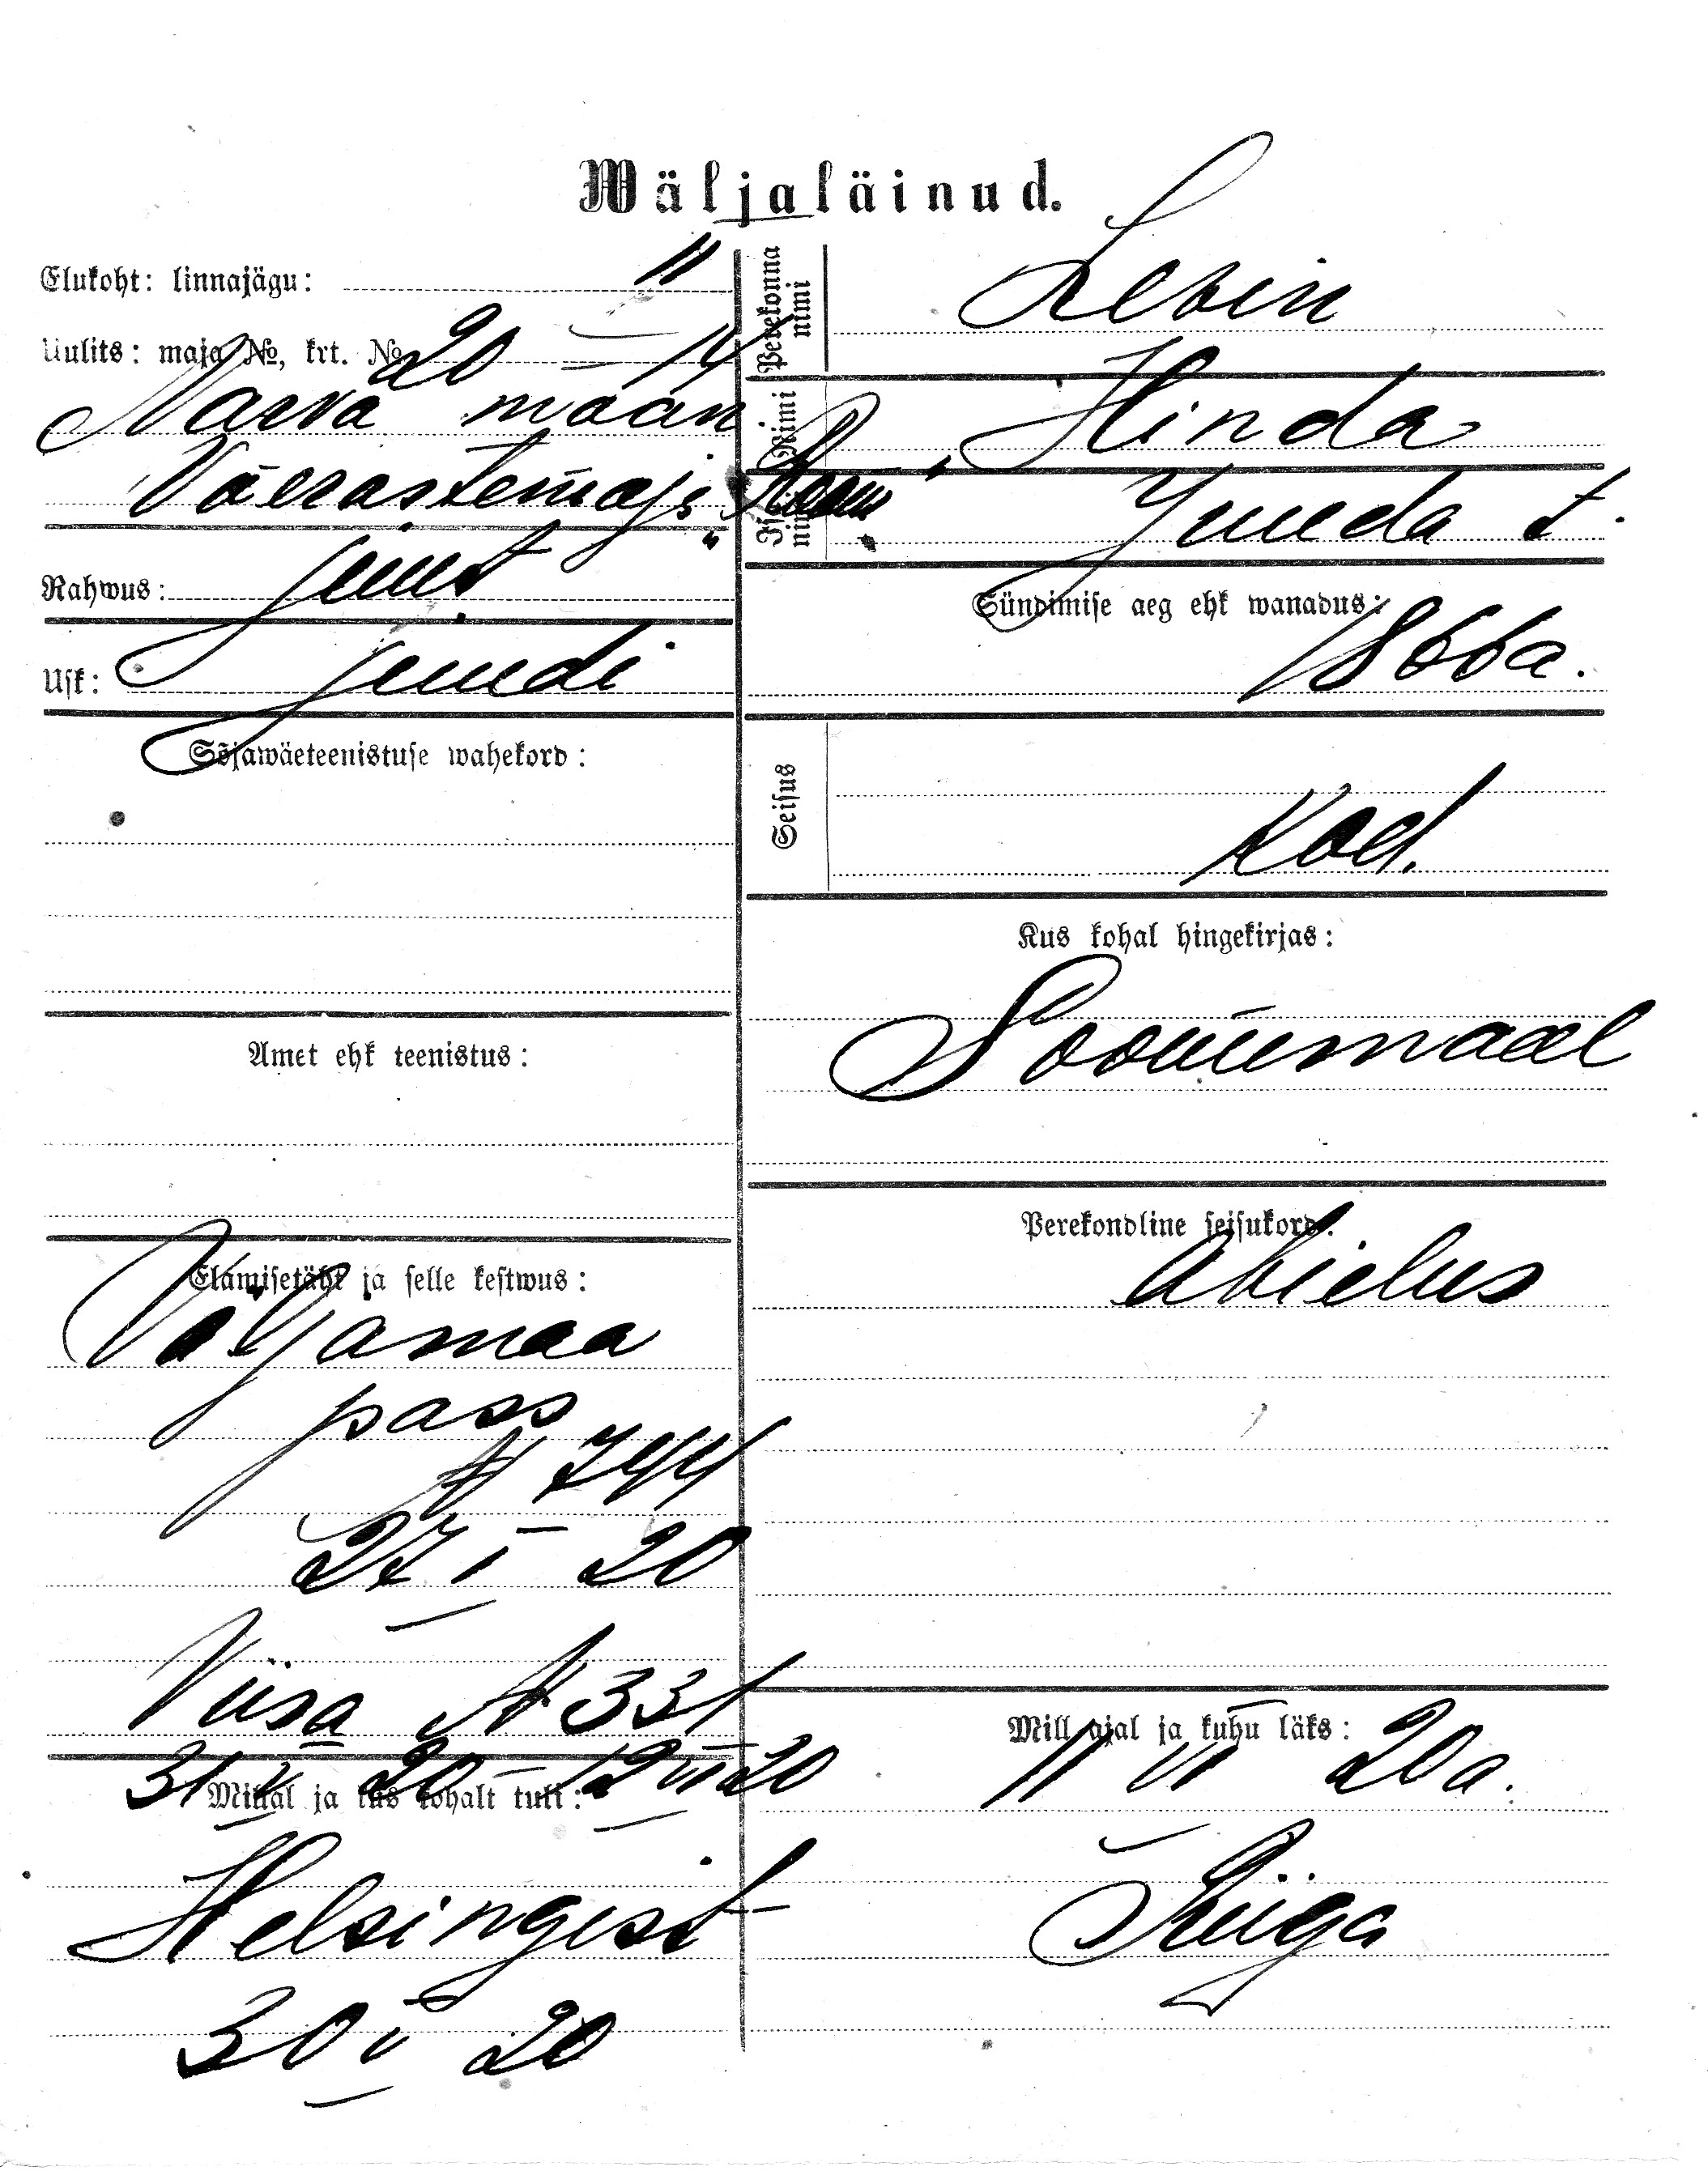 Wäljaläinud.
Elukoht: linnajägu: II
Uulits: maja №, krt. № 20 – 14
Narva maan
Võerastemaja „Rooma"
Rahwus: juut
Usk: juudi
Sõjawäeteenistuse wahekord:
Amet ehk teenistus:
Elamisetäht ja selle kestwus:
Väljamaa
pass
N 744
27 I 20
Viisa N 331
31 V 20 – 12 VI 20
Millal ja kus kohalt tuli:
Helsingist
30 V 20
Perekonna nimi Levin
Nimi Hinda
Isa nimi Juuda t.
Sündimise aeg ehk wanadus:
1866a.
Seisus
Kod.
Kus kohal hingekirjas:
Soomemaal
Perekondline seisukord:
Abielus
Mill ajal ja kuhu läks:
11 VI 20 a.
Riiga